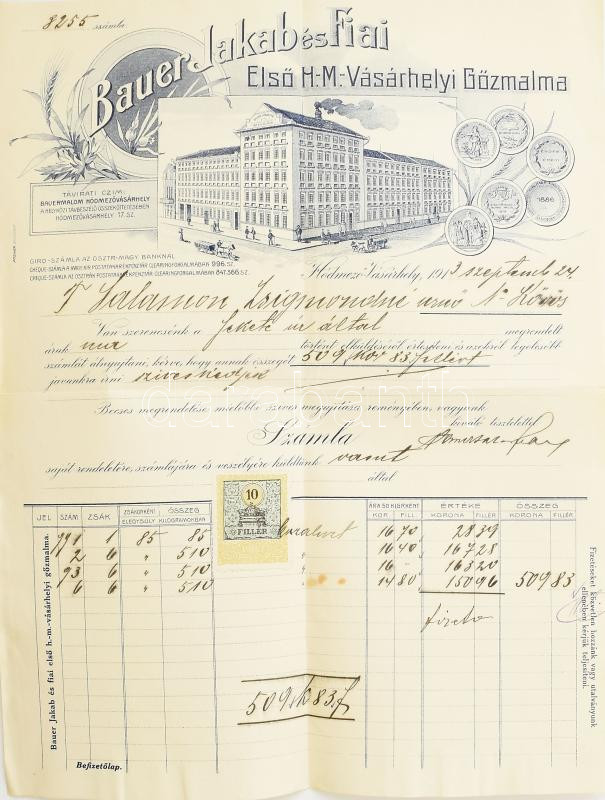 8255 számla
Bauer Jakab és Fiai
Első H.-M.-Vásárhelyi Gőzmalma
TÁVIRATI CZIM:
BAUERMALOM HÓDMEZŐVÁSÁRHELY
A HELYKÖZI TÁVBESZÉLŐ ÖSSZEKÖTTETÉSÉBEN
HÓDMEZŐVÁSÁRHELY 17. SZ.
1886
GIRO-SZÁMLA AZ OSZTR.-MAGY. BANKNÁL
CHÈQUE-SZÁMLA A MAGY. KIR. POSTATAKARÉKPÉNZTÁR CLEARINGFORGALMÁBAN 996. SZ.
CHÈQUE-SZÁMLA AZ OSZTRÁK POSTATAKARÉKPÉNZTÁR CLEARINGFORGALMÁBAN 847.566 SZ.
Hódmező-Vásárhely, 1913 szeptemb 24
T. Salamon Zsigmondné urnő N. Kőrös
Van szerencsénk a Fekete úr által megrendelt
áruk mai történt elküldéséről értesíteni és azokról legelőbb
számlát átnyujtani, kérve, hogy annak összegét 509 Kor 83 fillért
javunkra írni sziveskedjék
darabanth
Becses megrendelése mielőbbi szíves megujítása reményében, vagyunk
kiváló tisztelettel
Számla
saját rendeletére, számlájára és veszélyére küldtünk vasut
által
JEL SZÁM ZSÁK ZSÁKONKÉNT ÖSSZEG ELEGYSÚLY KILOGRAMMOKBAN ÁRA 50 KGRKÉNT KOR. FILL. ÉRTÉKE KORONA FILLÉR ÖSSZEG KORONA FILLÉR
10
FILLÉR
1 85 85 16 70 28 39
2 6 " 510 16 40 167 28
6 " 510 16 - 163 20
6 6 " 510 14 80 150 96 509 83
509 K 83 f
Bauer Jakab és fiai első h.-m.-vásárhelyi gőzmalma.
Fizetéseket közvetlen hozzánk vagy utalványunk
ellenében kérjük teljesíteni.
Befizetőlap.